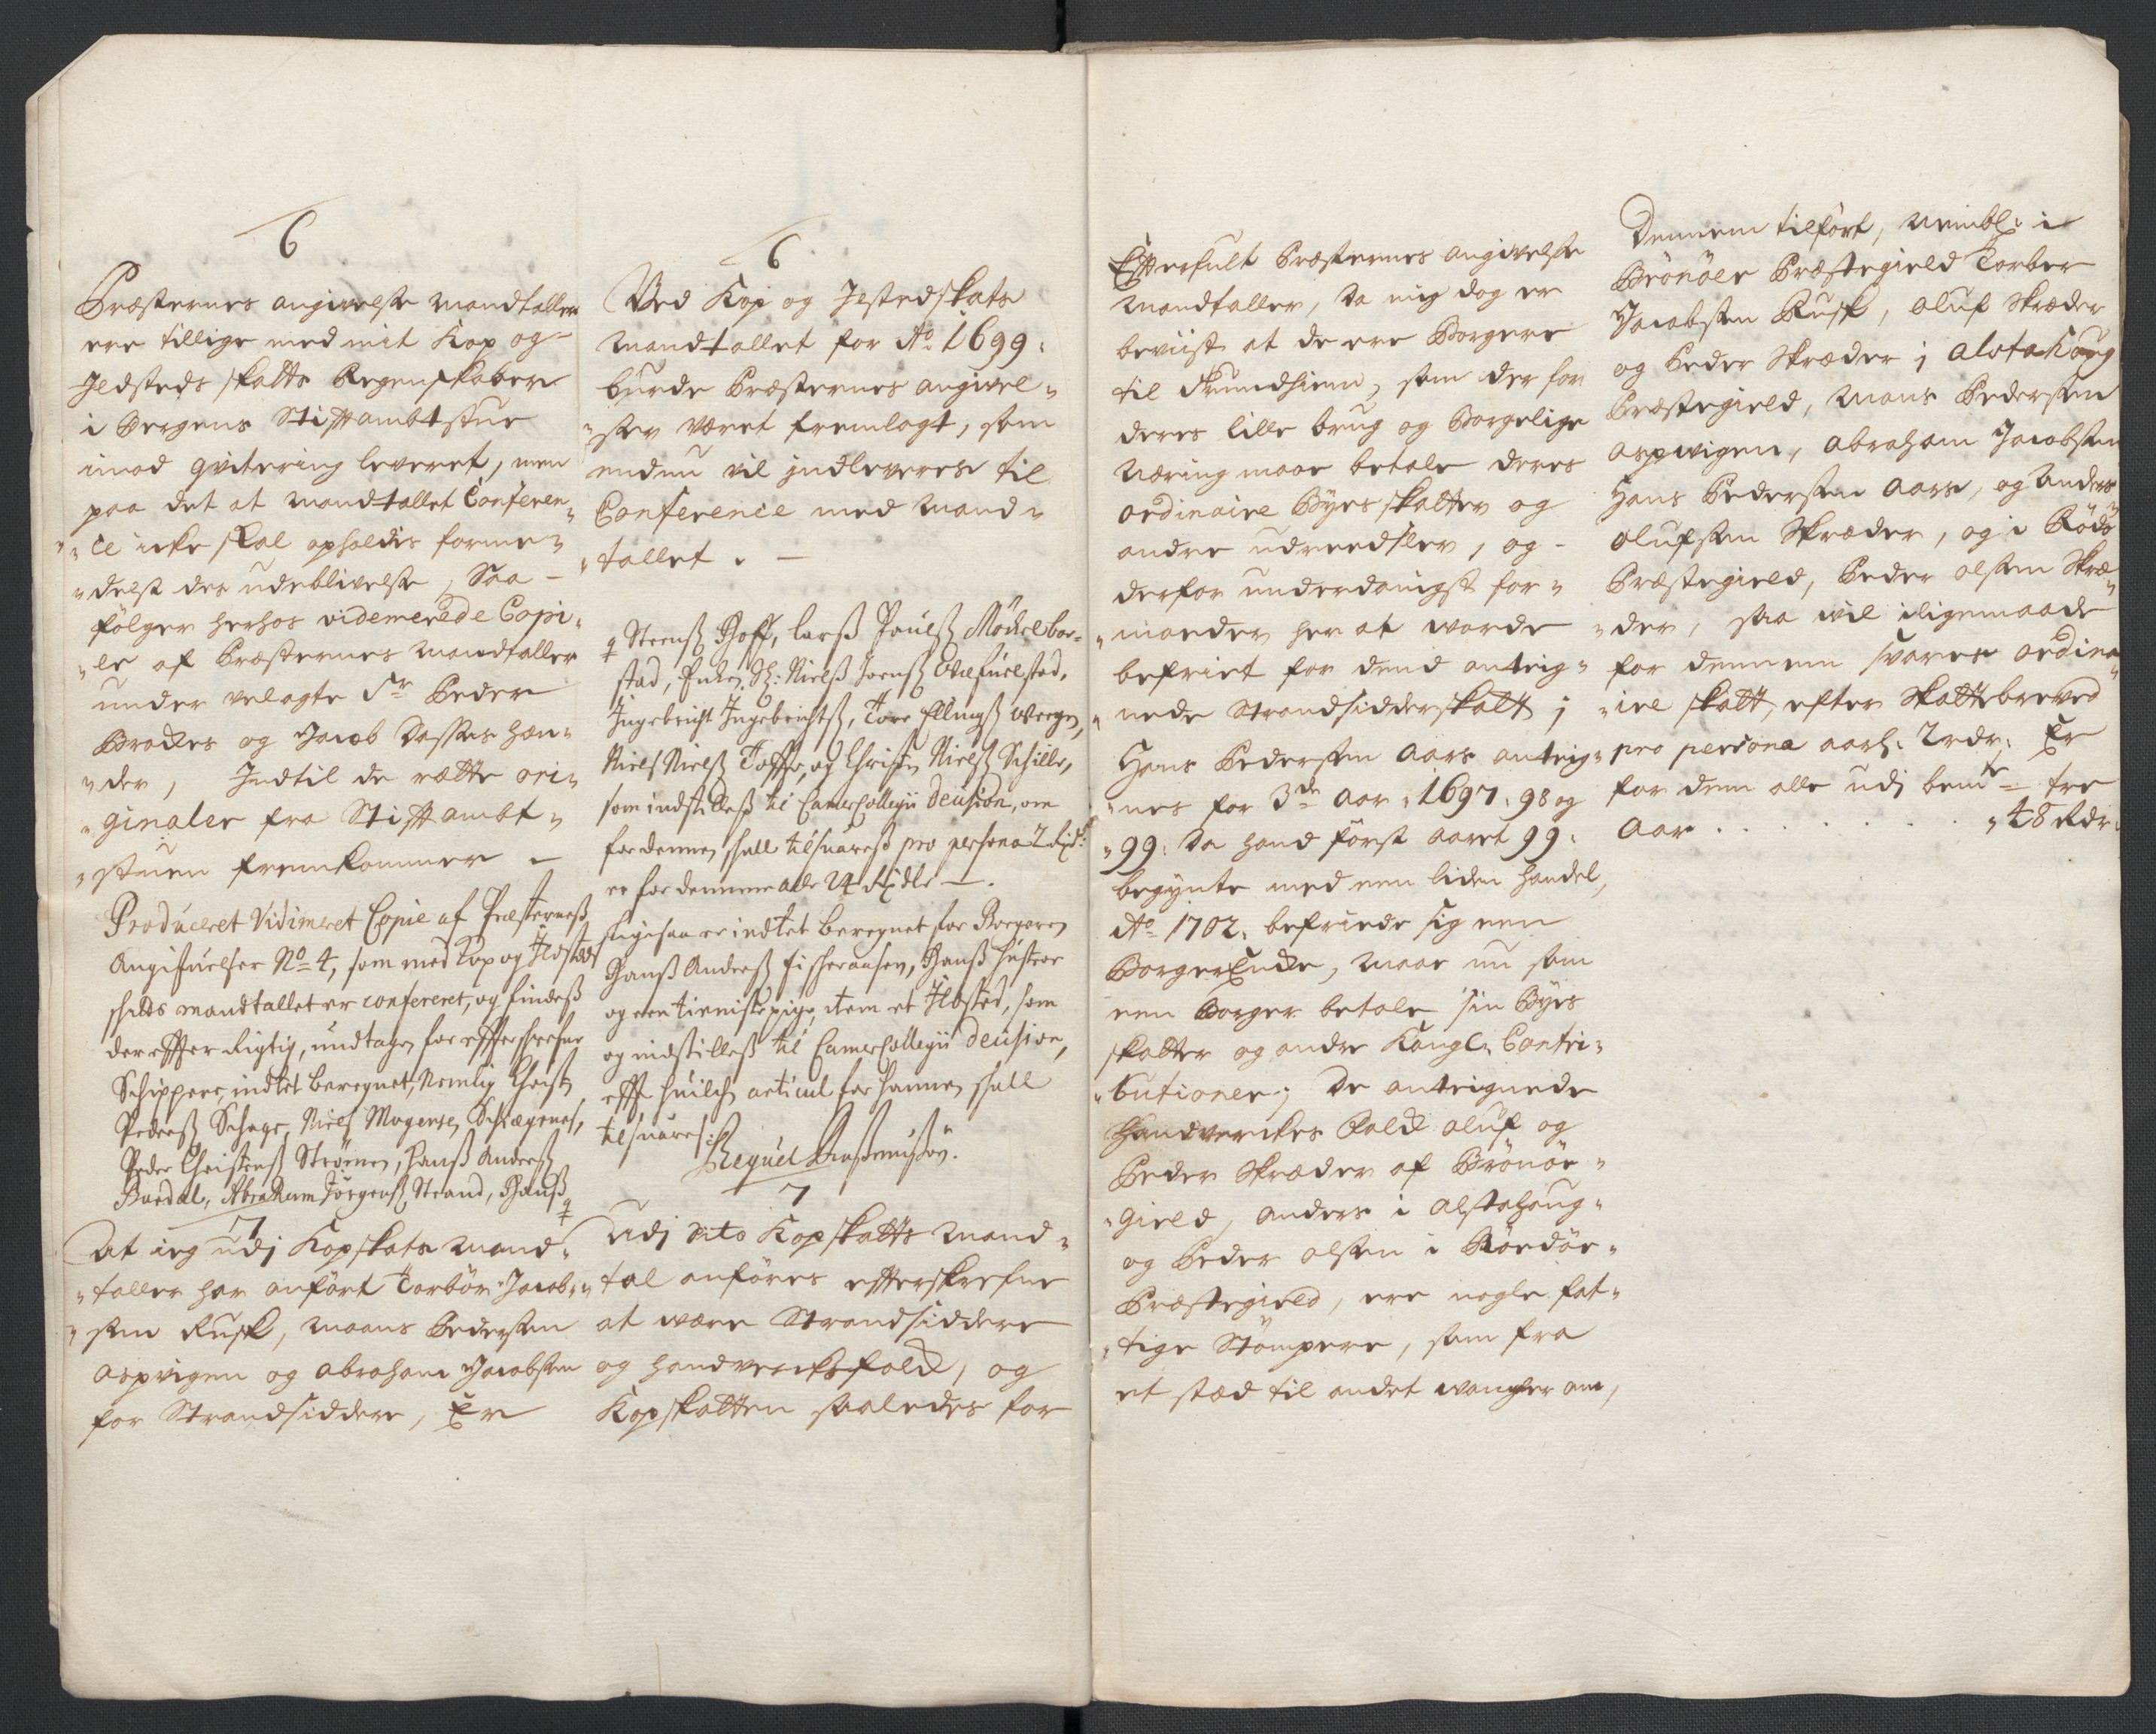 6
Præsternes angivelse mandtaller
ere tillige med mit Kop og
Jldsteds skatts Regenskaber
i Bergens Stiftambtstue
imod qvitering leveret, men
paa det at mandtallet Conferen-
"ce icke skal opholdis forme-
"delst des udeblivelse, Saa
følger herhos videmerede Copi-
"er af Præsternes mandtaller
under velagte Sr Peder
Brodes og Jacob Dasses hæn-
"der, Indtil de rette ori-
"ginaler fra Stiftambt-
"stuen fremkommer
Produceret Vidimeret Copie af Præsterneß
Angifvelser No 4, som med Kop og Ildsteds
skatts mandtallet er confereret, og findeß
der effter Rigtig, undtagen for effterschrefne
Schippere, indtet beregnet, Nemlig Christen
Pederß Schage, Niels Mogensen Schægenes,
Peder Christenß Strømen, Hanß Anderß
Buedal, Abraham Jørgenß Strand, Hanß
7
At ieg udj Kopskats mand-
"taller har anført Torbør Jacob-
"sen Rusk, Maans Pedersen
Aspvigen og Abraham Jacobsen
for Strandsiddere, Er
6
Ved Kop og Jlstedskats
mandtallet for Ao 1699:
burde Præsternes angivel-
"ser været fremlagt, som
endnu vil indleveres til
Conference med mand-
"tallet.
Steenß Hoff, Larß Poulß Möckelbor-
stad, Enken Sl: Nielß Joenß Ovefuelstad,
Ingebricht Ingebrichtß, Tore Ellingß Weegen,
Niels Nielß Toffte, og Christen Nielß Schille,
som indstilleß til Camer Collegii decision, om
for dennem shall tilsuareß pro persona 2 Rixd:
er for dennem alle 24 Rixdlr
Ligesaa er indtet beregnet for Borgeren
Hanß Anderß Fischeraasen, Hanß hustroe
og een tienistepige, item et Ildsted, som
og indstilleß til Camer Collegii decision,
efft huilchen articul for hannem shall
tilsuares:
Requel Rasmußen.
7
Udj dito Kopskatts mand-
"tal anføres effterskrefne
at være Strandsiddere
og handvercksfolck, og
Kopskatten saaledes for
Effterfult Præsternes angivelse
mandtaller, Da mig dog er
beviist at de ere Borgere
til Trundhiem, som der for
deres lille brug og Borgelige
Næring maae betale deres
ordinaire Byes skatter og
andre udreedsler, og
derfor underdanigst for-
"moeder her at worde
befriet for dend anteig-
"nede Strandsidderskatt;
Hans Pedersen Aars anteig-
"nes for 3de Aar, 1697, 98 og
"99: Da hand først aaret 99:
begynte med een liden handel,
Ao 1702: befriede sig een
BorgerEnde, maae nu som
een Borger betale sin Byes
skatter og andre Kongl. Contri-
"butioner; De anteignede
Handverckes Folck Oluf og
Peder Skræder af Brønøe-
"gield, Anders i Alstahoug-
og Peder Olsen i Rødøe-
Præstegield, ere nogle fat-
"tige Stømpere, som fra
et stæd til andet vancher om,
Dennem tilført, Nembl: i
Brönöes Præstegield Torber
Jacobsen Rusk, Oluf Skræder
og Peder Skræder j Alstahoug
Præstegield, Mons Pedersen
Aspvigen, Abraham Jacobsen
Hans Pedersen Aars, og Anders
Olufsen Skræder, og i Röds
Præstegield, Peder Olsen Skræ-
"der, saa vil iligemaade
for dennem svares ordina-
"ire skatt, efter Skattebreved
pro persona aarl: 2 rdr: Er
for dem alle udj bemte tre
Aar . . . . . . . . "48 Rdr: